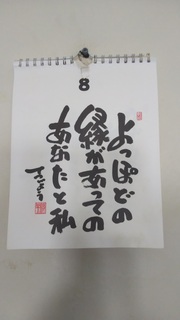 8
よっぽどの
縁があっての
あなたと私